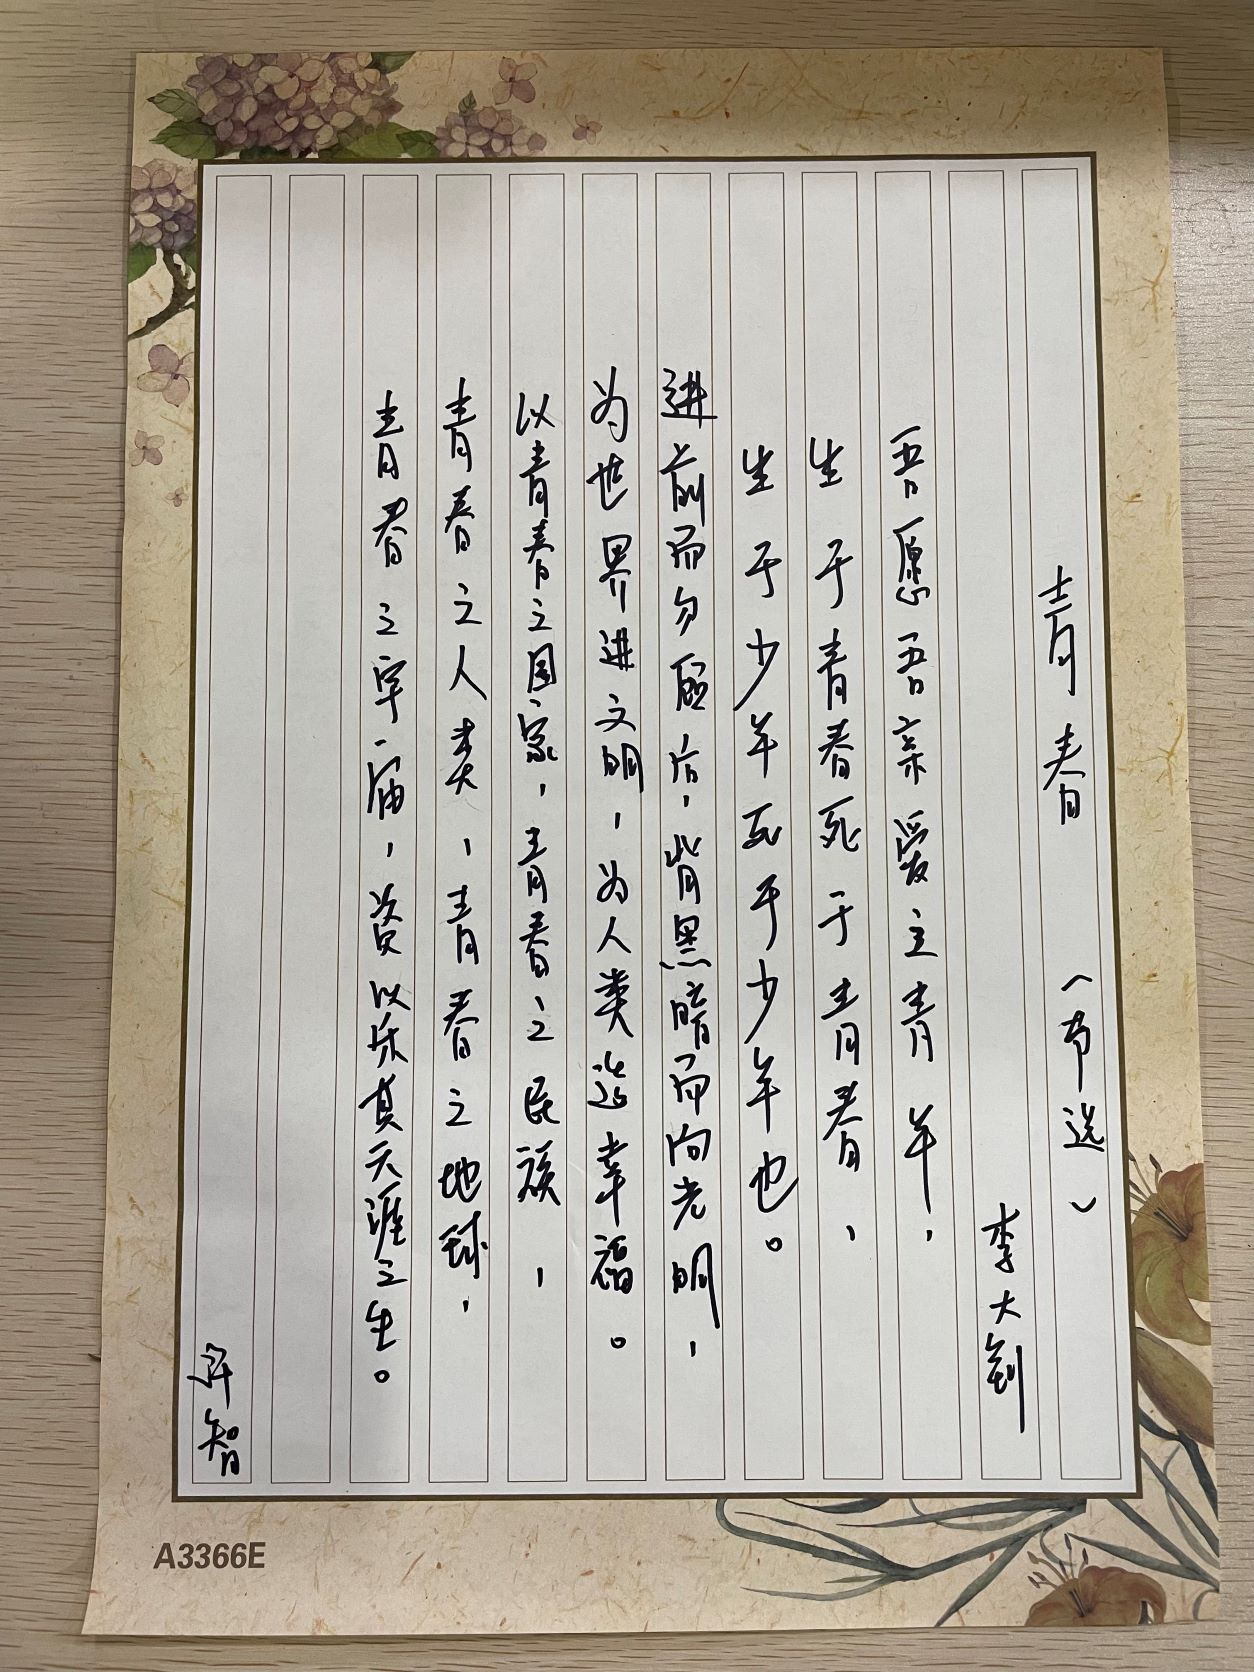 青春（节选）
李大钊
吾愿吾亲爱之青年，
生于青春死于青春，
生于少年死于少年也。
进前而勿顾后，背黑暗而向光明，
为世界进文明，为人类造幸福。
以青春之国家，青春之民族，
青春之人类，青春之地球，
青春之宇宙，资以乐其天涯之生。
智
A3366E